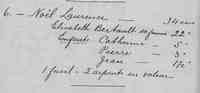 6. — Noël Laurence — 34 ans
Elisabeth Bertault sa femme 22 "
Enfants Catherine — 5 "
Pierre — 3 "
Jean — 
1 fusil - 2 arpents en valeur